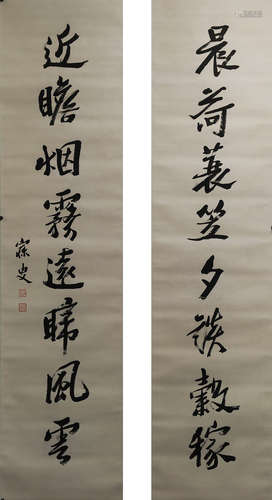 晨荷蓑笠夕談穀稼
近瞻烟霧遠睇風雲
寐叟